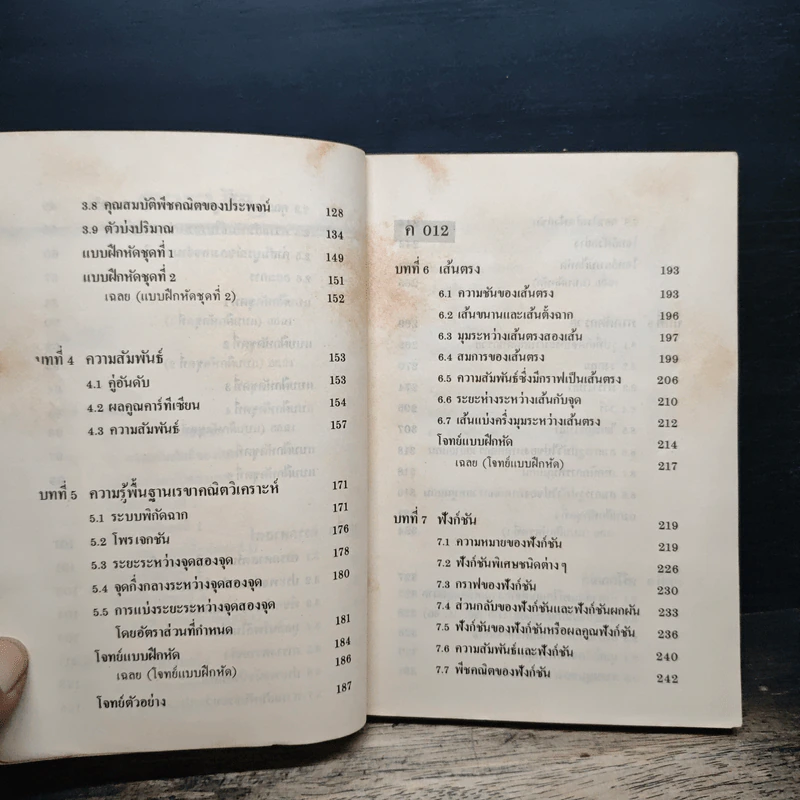 3.8 คุณสมบัติพีชคณิตของประพจน์ 128
3.9 ตัวบ่งปริมาณ 134
แบบฝึกหัดชุดที่ 1 149
แบบฝึกหัดชุดที่ 2 151
เฉลย (แบบฝึกหัดชุดที่ 2) 152
บทที่ 4 ความสัมพันธ์ 153
4.1 คู่อันดับ 153
4.2 ผลคูณคาร์ทีเซียน 154
4.3 ความสัมพันธ์ 157
บทที่ 5 ความรู้พื้นฐานเรขาคณิตวิเคราะห์ 171
5.1 ระบบพิกัดฉาก 171
5.2 โพรเจกชัน 176
5.3 ระยะระหว่างจุดสองจุด 178
5.4 จุดกึ่งกลางระหว่างจุดสองจุด 180
5.5 การแบ่งระยะระหว่างจุดสองจุด
โดยอัตราส่วนที่กำหนด 181
โจทย์แบบฝึกหัด 184
เฉลย (โจทย์แบบฝึกหัด) 186
โจทย์ตัวอย่าง 187
ค 012
บทที่ 6 เส้นตรง 193
6.1 ความชันของเส้นตรง 193
6.2 เส้นขนานและเส้นตั้งฉาก 196
6.3 มุมระหว่างเส้นตรงสองเส้น 197
6.4 สมการของเส้นตรง 199
6.5 ความสัมพันธ์ซึ่งมีกราฟเป็นเส้นตรง 206
6.6 ระยะห่างระหว่างเส้นกับจุด 210
6.7 เส้นแบ่งครึ่งมุมระหว่างเส้นตรง 212
โจทย์แบบฝึกหัด 214
เฉลย (โจทย์แบบฝึกหัด) 217
บทที่ 7 ฟังก์ชัน 219
7.1 ความหมายของฟังก์ชัน 219
7.2 ฟังก์ชันพิเศษชนิดต่าง ๆ 226
7.3 กราฟของฟังก์ชัน 230
7.4 ส่วนกลับของฟังก์ชันและฟังก์ชันผกผัน 233
7.5 ฟังก์ชันของฟังก์ชันหรือผลคูณฟังก์ชัน 236
7.6 ความสัมพันธ์และฟังก์ชัน 240
7.7 พีชคณิตของฟังก์ชัน 242